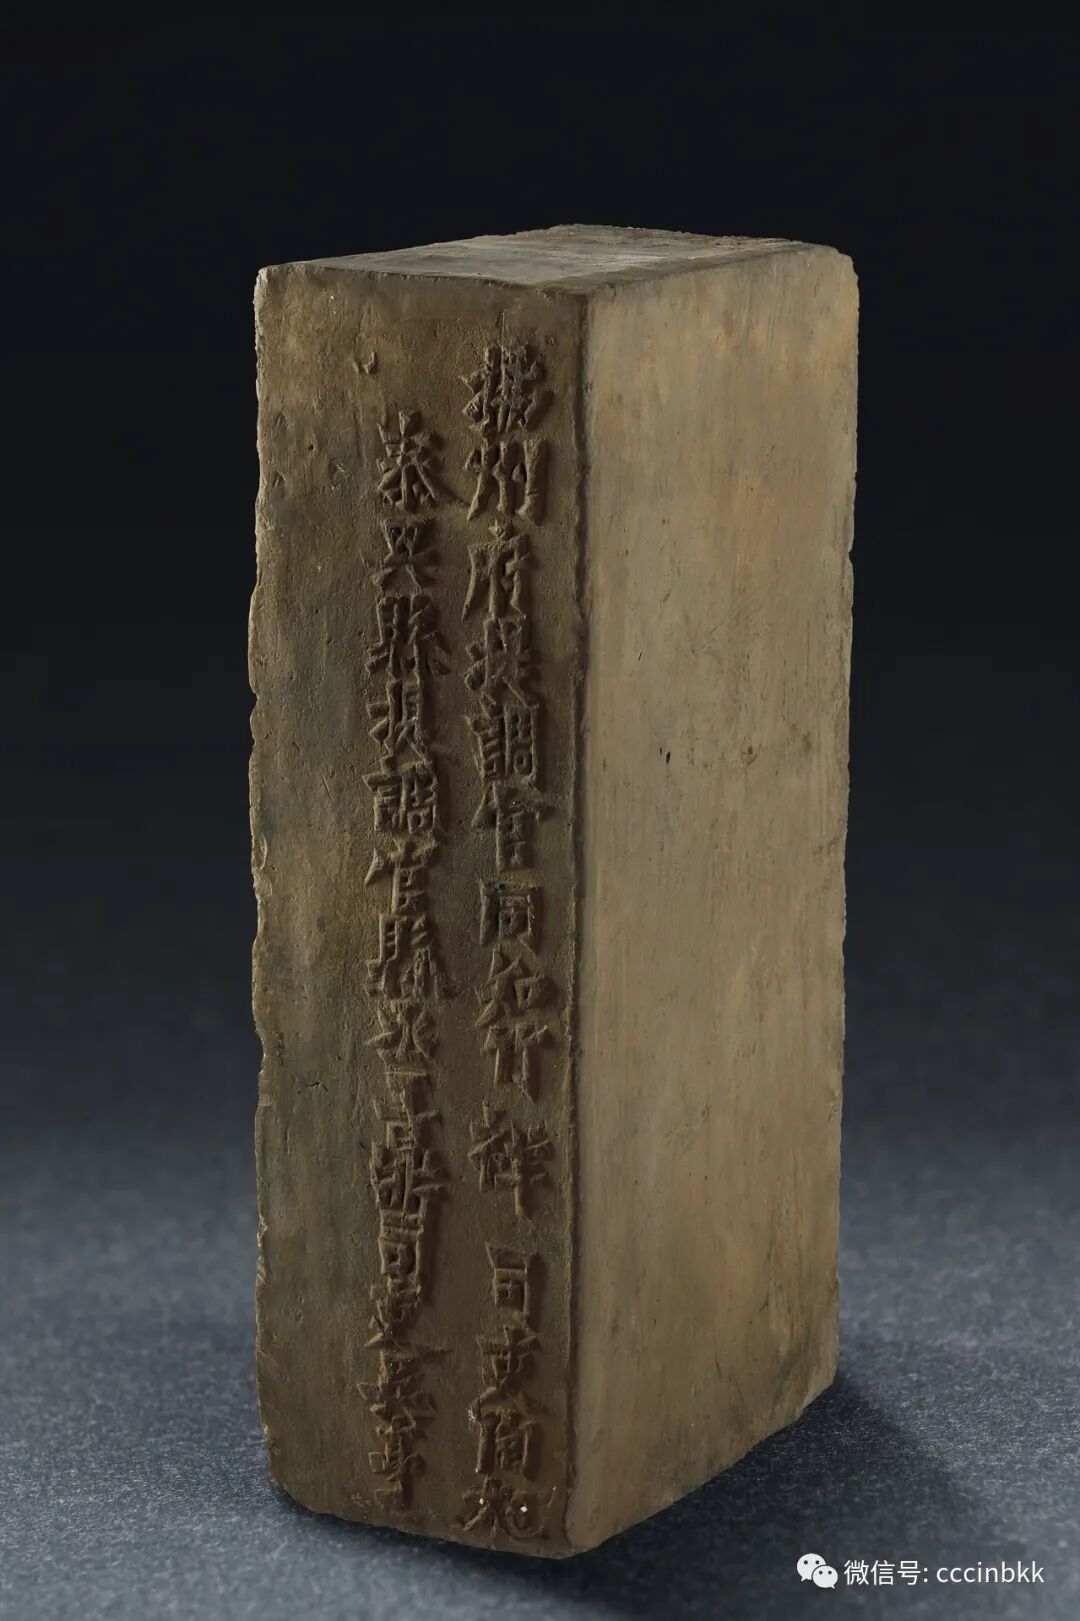 揚州府提調官同知竹祥司吏何旭
泰興縣提調官縣丞高晋司吏
微信号: cccinbkk